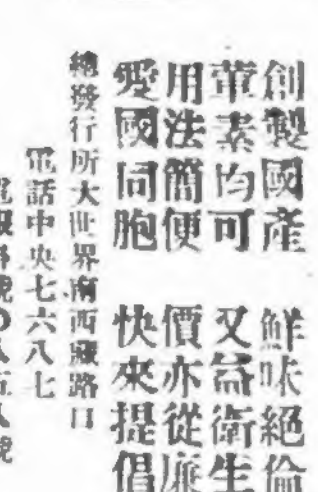 創製國產 鮮味絕倫
葷素均可 又益衛生
用法簡便 價亦從廉
愛國同胞 快來提倡
總發行所大世界南西藏路口
電話中央七六八七
電報掛號〇八五八號